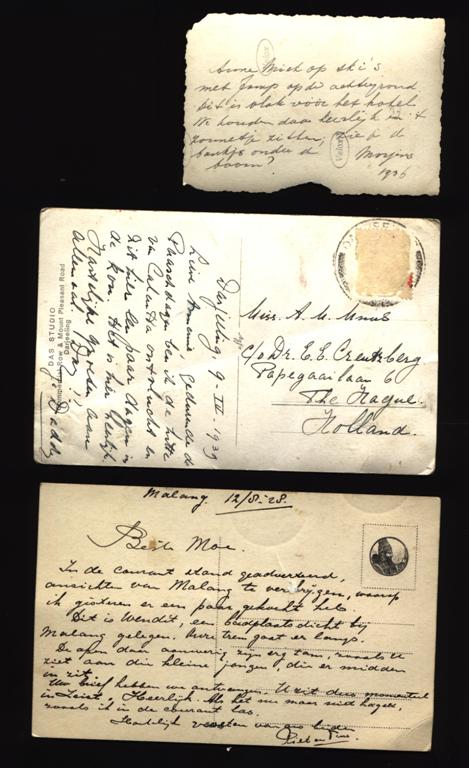 Anne Miet op ski's
met Jump op de achtergrond
Dit is vlak vóór het hotel
We houden daar heerlijk in 't
zonnetje zitten, zie je de
bankje onder de
boom?
1936
Velox
Velox
Darjeeling 9-III-1939
Lieve Annemie. Gedurende de
Paaschdagen ben ik de hitte
van Calcutta ontvlucht en
zit hier een paar dagen in
de kou. Het is hier heerlijk.
Hartelijke groeten aan
allemaal. Dag!!
Daddy
DAS STUDIO
Row & Mount Pleasant Road
Darjeeling
Miss. A. M.
c/o Dr. E. E. Creutzberg
Papegaailaan 6
The Hague.
Holland.
Malang. 12/8-'28.
Beste Moe.
In de courant stond geadverteerd,
ansichten van Malang te verkrijgen, waarop
ik gisteren er een paar gekocht heb.
Dit is Wendit, een badplaats dicht bij
Malang gelegen. Onze trem gaat er langs.
De apen daar aanwezig zijn erg tam, zooals U
ziet aan die kleine jongen, die er midden
in zit.
Uw brief hebben we ontvangen. U zit dus momenteel
in Zeist. Heerlijk. Als het nu maar niet hagelt,
zooals ik in de courant las.
Hartelijk van ons beiden
Piet en